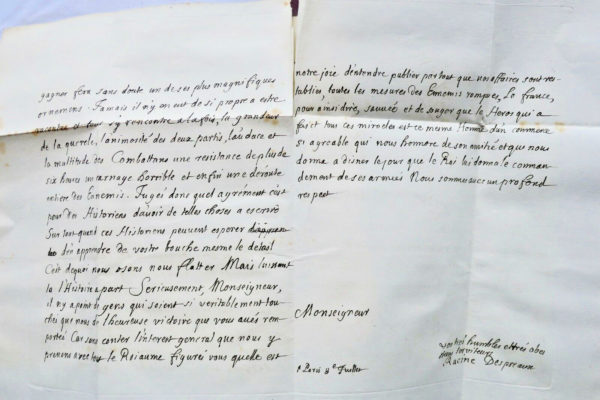 gagner fera sans doute un de ses plus magnifiques
ornemens. Jamais il n'y en eut de si propre a estre
s'y rencontre a la fois, la grandeur
de la querele, l'animosité des deux partis, l'audace et
la multitude des Combattans une resistance de plus de
six heures un carnage horrible et enfin une déroute
entiere des Ennemis. Jugez donc quel agrément c'est
pour des Historiens d'avoir de telles choses a escrire
Sur tout quand ces Historiens peuvent esperer
de apprendre de vostre bouche mesme le detail
C'est dequoi nous osons nous flatter Mais laissant
la l'Histoire a part Serieusement, Monseigneur,
il n'y a point de gens qui soient si veritablement tou-
chés que nous de l'heureuse victoire que vous avés rem-
portée Car sans conter l'interest general que nous y
prenons avec tout le Roiaume figurés vous quelle est
notre joie d'entendre publier par tout que nos affaires sont res-
tablies, toutes les mesures des Ennemis rompues, la france,
pour ainsi dire, sauvée et de songer que le Heros qui a
fait tout ces miracles est ce mesme Homme d'un commerce
si agreable qui nous honore de son amitié et qui nous
donna a disner le jour que le Roi lui donna le comman-
dement de ses armées Nous sommes avec un profond
respect
Monseigneur
A Paris 8e Juillet
vos très humbles et très obei
Racine Despreaux